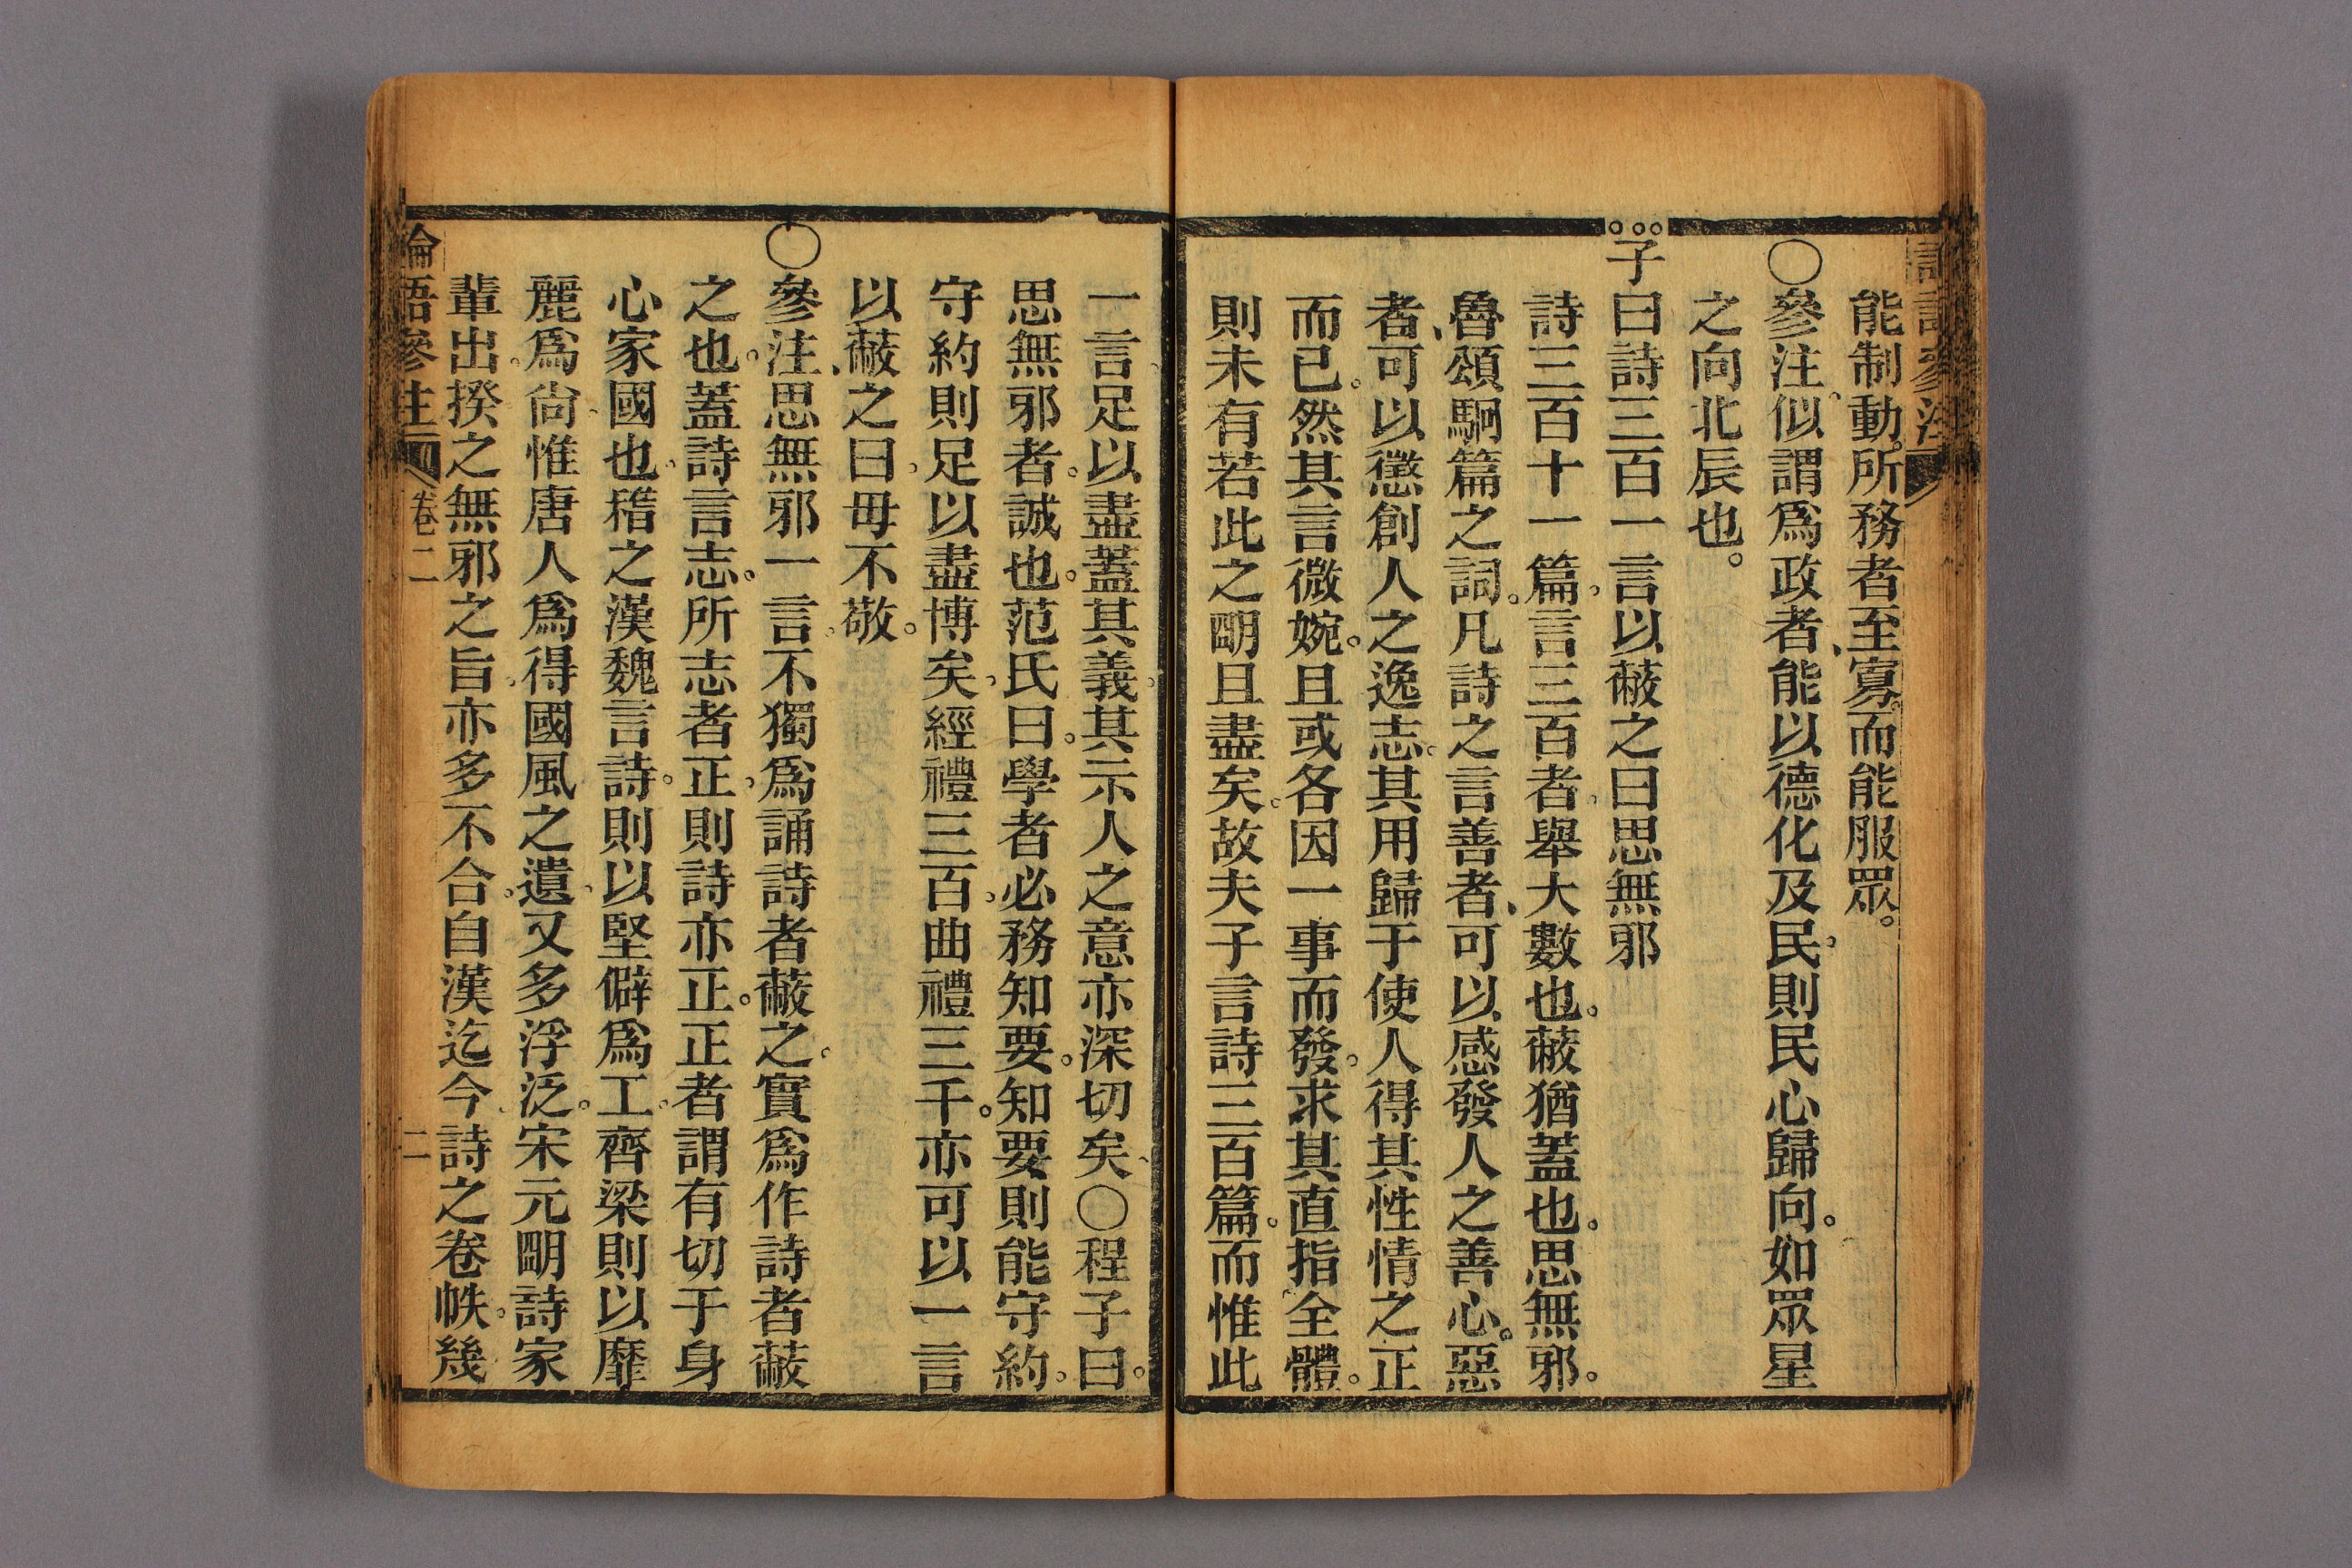 能制動。所務者至寡。而能服眾。
○參注。似謂爲政者、能以德化及民。則民心歸向。如眾星
之向北辰也。
子曰詩三百一言以蔽之曰思無邪
詩三百十一篇。言三百者。舉大數也。蔽猶蓋也。思無邪。
魯頌駉篇之詞。凡詩之言善者、可以感發人之善心。惡
者、可以懲創人之逸志。其用歸于使人得其性情之正
而已。然其言微婉。且或各因一事而發。求其直指全體。
則未有若此之朙且盡矣。故夫子言詩三百篇。而惟此
一言足以盡蓋其義。其示人之意亦深切矣○程子曰。
思無邪者。誠也。范氏曰。學者必務知要。知要則能守約。
守約則足以盡博矣。經禮三百。曲禮三千。亦可以一言
以蔽之曰。毋不敬。
○參注、思無邪一言。不獨爲誦詩者蔽之。實爲作詩者蔽
之也。蓋詩言志。所志者正。則詩亦正。正者謂有切于身
心家國也。稽之漢魏言詩。則以堅僻爲工。齊梁則以靡
麗爲尙。惟唐人爲得國風之遺。又多浮泛。宋元朙詩家
輩出。揆之無邪之旨。亦多不合。自漢迄今詩之卷帙。幾
論語參注
卷二
二